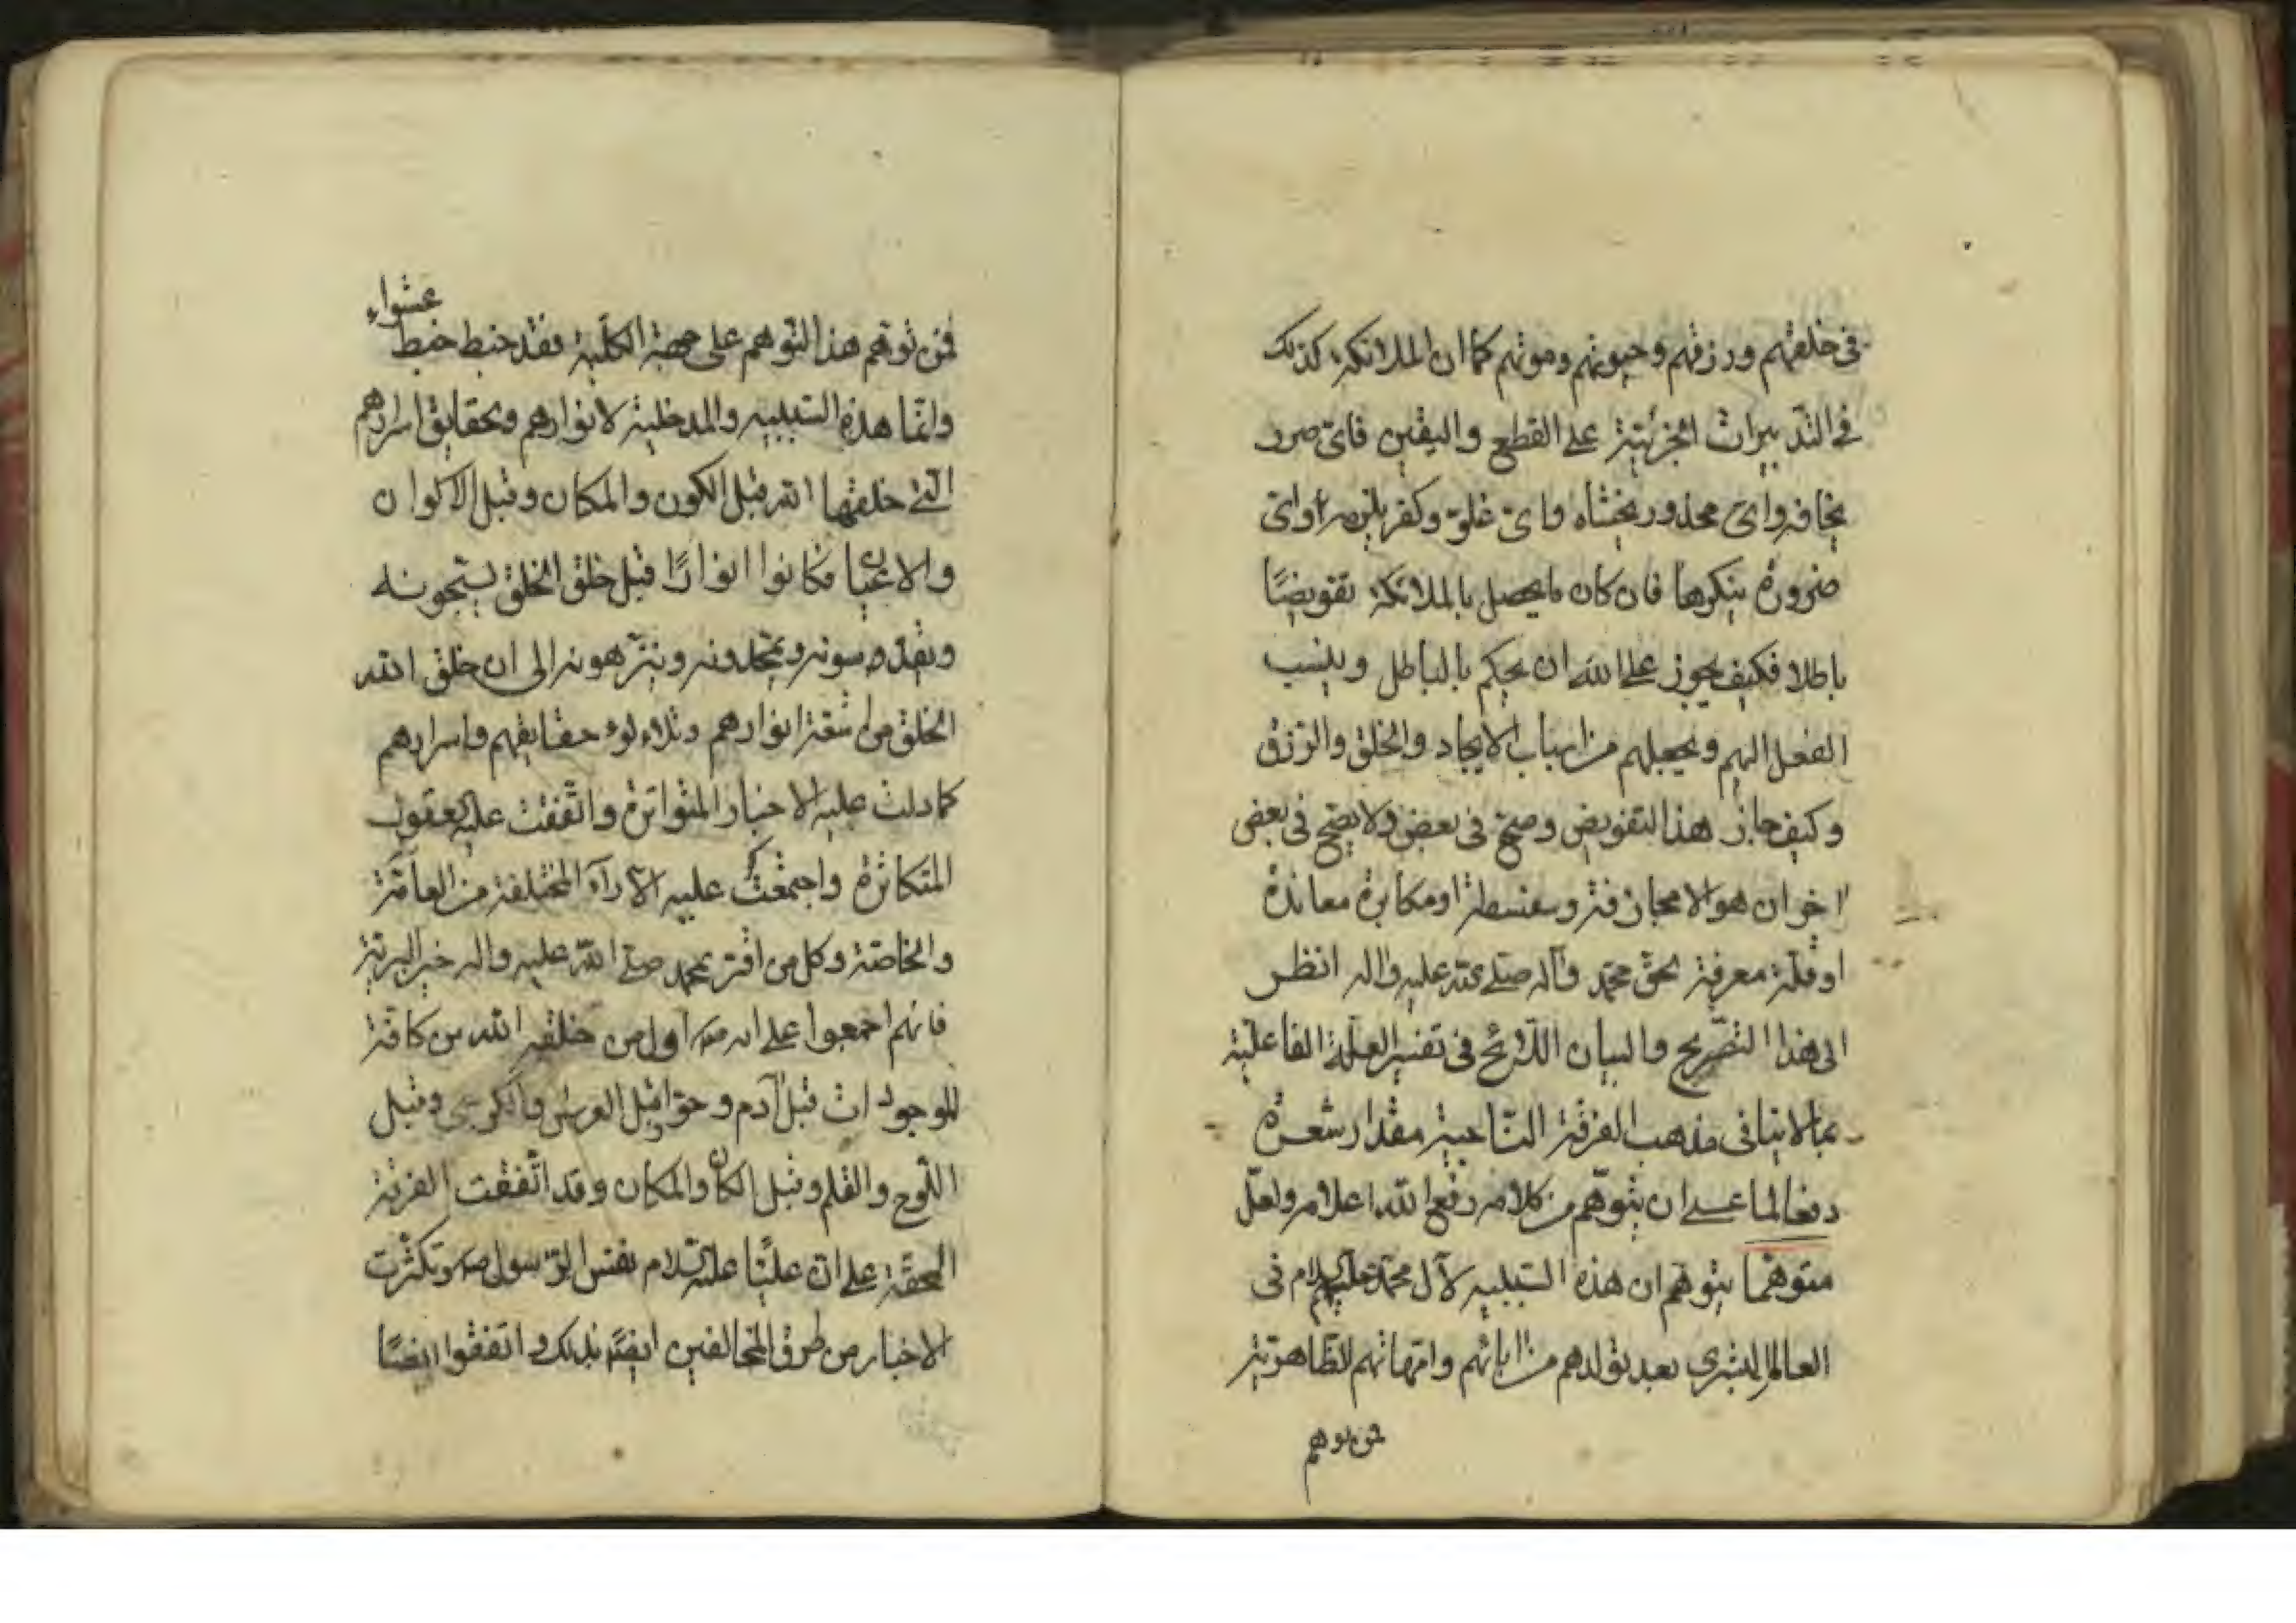 في خلقهم ورزقهم وحيوتهم وموتهم كما ان الملائكة كذلك
في التدبيرات الجزئية على القطع واليقين فاي ضرر
يخافه واي محذور يخشاه واي غلو وكفر يلزمه او اي
ضرورة ينكرها فان كان ما يحصل بالملائكة تفويضًا
باطلا فكيف يجوز على الله ان يحكم بالباطل وينسب
الفعل اليهم ويجعلهم من اسباب الايجاد والخلق والرزق
وكيف جاز هذا التفويض وصح في بعض ولا يصح في بعض
اخر ان هو الا مجازفة وسفسطة او مكابرة معاندة
او قلة معرفة بحق محمد وآله صلى الله عليه واله انظر
الى هذا التصريح والبيان اللائح في تفسير العلة الفاعلية
بما لا ينافي مذهب الفرقة الناجية مقدار شعرة
دفعا لما عسى ان يتوهم من كلامه رفع الله اعلامه ولعل
متوهما يتوهم ان هذه السببية لآل محمد عليهم السلام في
العالم البشري بعد تولدهم من ابائهم وامهاتهم الظاهرية
فمن توهم
فمن توهم هذا التوهم على جهة الكلية فقد خبط خبط
عشواء
وانما هذه السببية والمدخلية لانوارهم وبحقايق اسرارهم
التي خلقها الله قبل الكون والمكان وقبل الاكوان
والاعيان فكانوا انوارًا قبل خلق الخلق يسبحونه
ويقدسونه ويمجدونه وينزهونه الى ان خلق الله
الخلق من اشعة انوارهم وتلاءلوء حقايقهم واسرارهم
كما دلت عليه الاخبار المتواترة واتفقت عليه العقول
المتكاثرة واجتمعت عليه الاراء المختلفة من العامة
والخاصة وكل من اقر بمحمد صلى الله عليه واله خير البرية
فانهم اجمعوا على انه ص اول من خلقه الله من كافة
الموجودات قبل آدم وحوا وقبل العرش والكرسي وقبل
اللوح والقلم وقبل الكان والمكان وقد اتفقت الفرقة
المحقة على ان عليًا عليه السلام نفس الرسول ص وتكثرت
الاخبار من طرق المخالفين ايضًا بذلك واتفقوا ايضًا